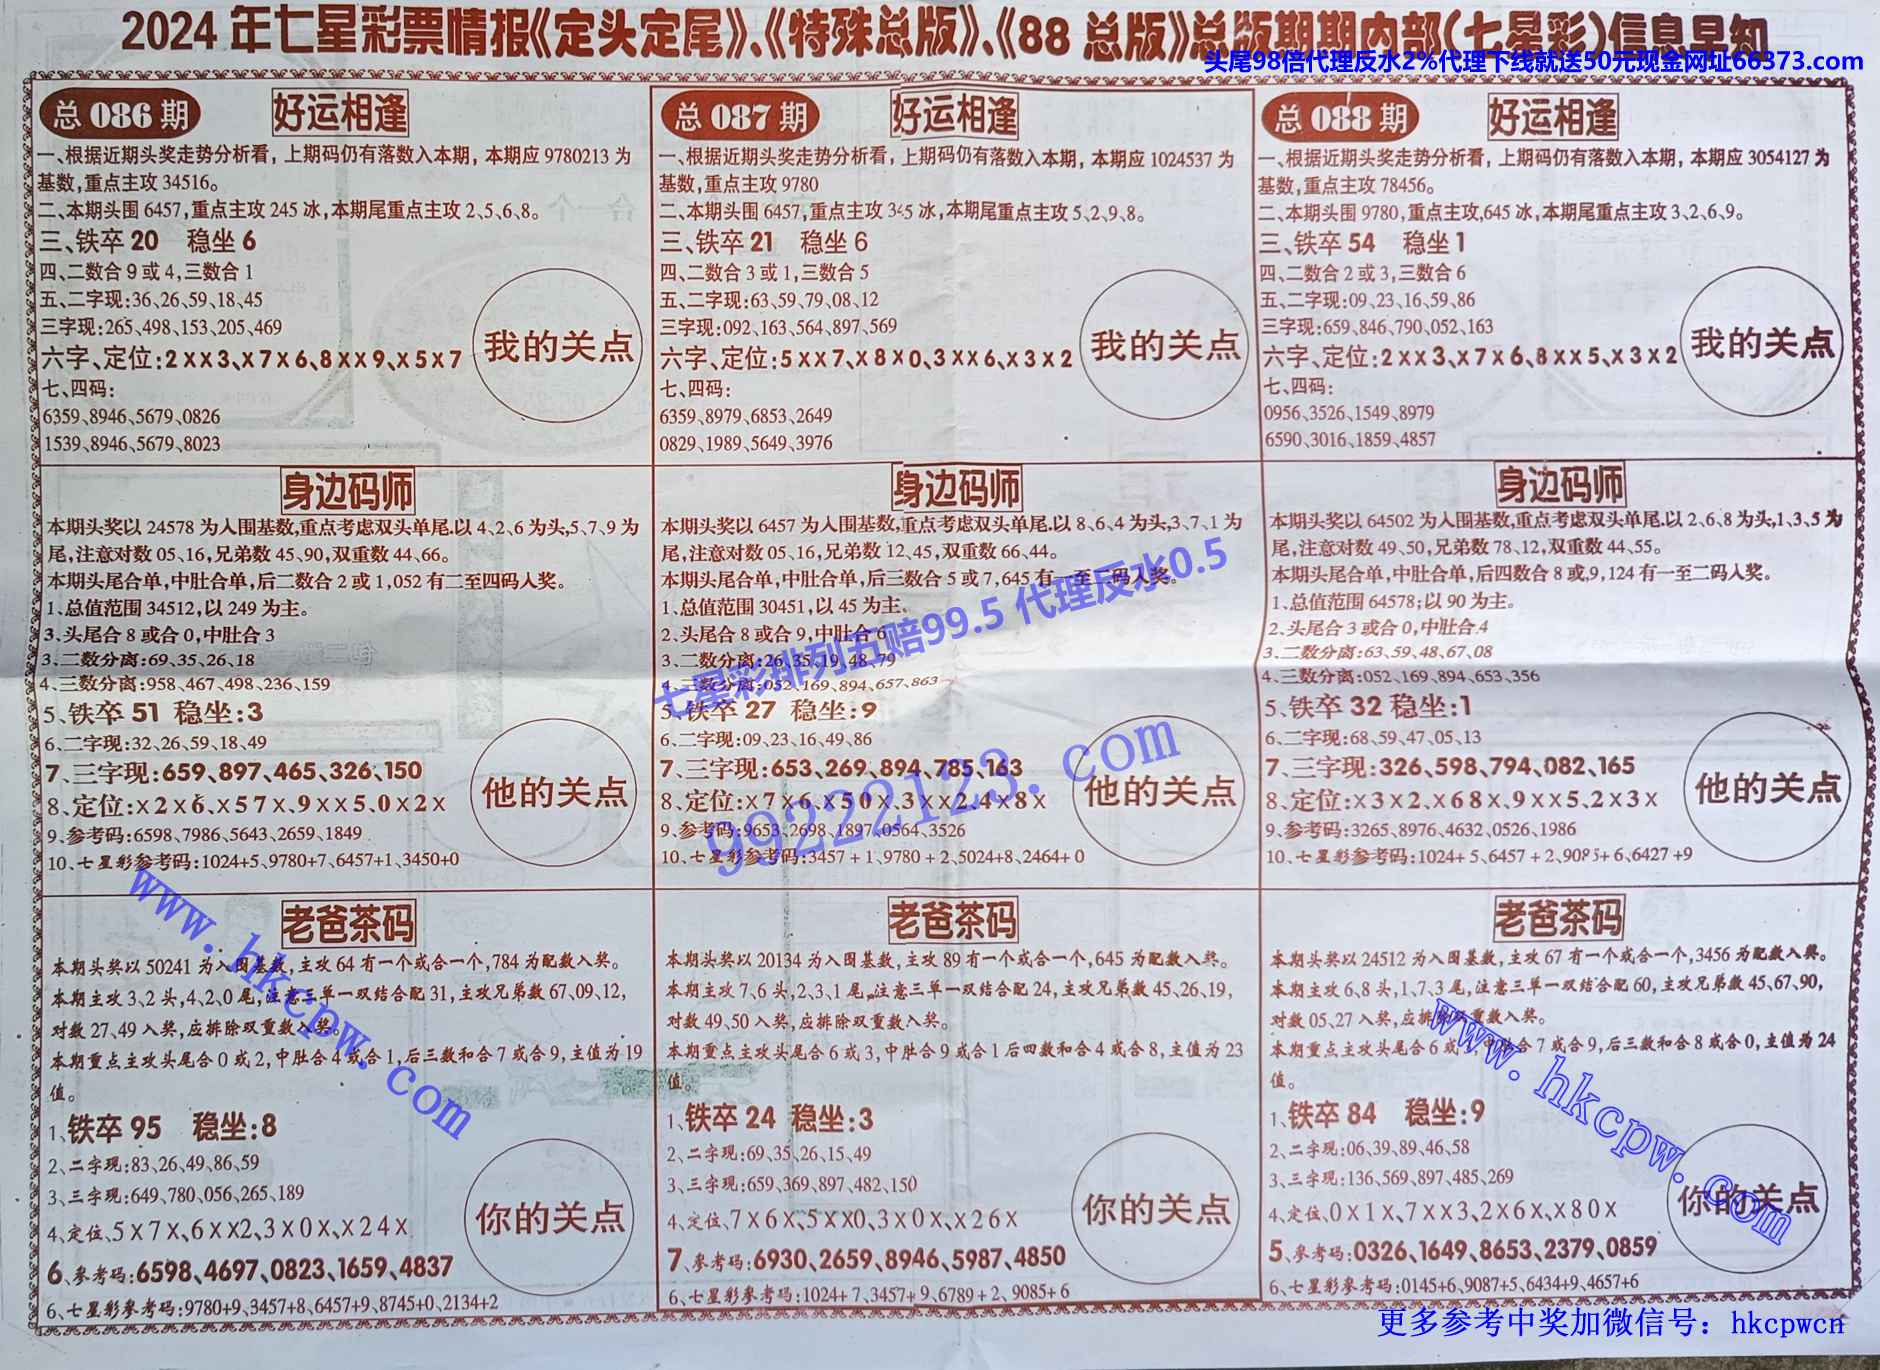 2024年七星彩票情报《定头定尾》、《特殊总版》、《88总版》总版期期内部(七星彩)信息早知
头尾98倍代理反水2%代理下线就送50元现金网址66373.com
总 086 期
好运相逢
一、根据近期头奖走势分析看，上期码仍有落数入本期，本期应 9780213 为
基数，重点主攻 34516。
二、本期头围 6457，重点主攻 245 冰，本期尾重点主攻 2、5、6、8。
三、铁卒 20 稳坐 6
四、二数合 9 或 4，三数合 1
五、二字现：36、26、59、18、45
三字现：265、498、153、205、469
六字、定位：2××3、×7×6、8××9、×5×7
七、四码：
6359、8946、5679、0826
1539、8946、5679、8023
我的关点
总 087 期
好运相逢
一、根据近期头奖走势分析看，上期码仍有落数入本期，本期应 1024537 为
基数，重点主攻 9780
二、本期头围 6457，重点主攻 345 冰，本期尾重点主攻 5、2、9、8。
三、铁卒 21 稳坐 6
四、二数合 3 或 1，三数合 5
五、二字现：63、59、79、08、12
三字现：092、163、564、897、569
六字、定位：5××7、×8×0、3××6、×3×2
七、四码：
6359、8979、6853、2649
0829、1989、5649、3976
我的关点
总 088 期
好运相逢
一、根据近期头奖走势分析看，上期码仍有落数入本期，本期应 3054127 为
基数，重点主攻 78456。
二、本期头围 9780，重点主攻，645 冰，本期尾重点主攻 3、2、6、9。
三、铁卒 54 稳坐 1
四、二数合 2 或 3，三数合 6
五、二字现：09、23、16、59、86
三字现：659、846、790、052、163
六字、定位：2××3、×7×6、8××5、×3×2
七、四码：
0956、3526、1549、8979
6590、3016、1859、4857
我的关点
身边码师
本期头奖以 24578 为入围基数，重点考虑双头单尾．以 4、2、6 为头，5、7、9 为
尾，注意对数 05、16，兄弟数 45、90，双重数 44、66。
本期头尾合单，中肚合单，后二数合 2 或 1，052 有二至四码入奖。
1、总值范围 34512，以 249 为主。
3、头尾合 8 或合 0，中肚合 3
3、二数分离：69、35、26、18
4、三数分离：958、467、498、236、159
5、铁卒 51 稳坐：3
6、二字现：32、26、59、18、49
7、三字现：659、897、465、326、150
8、定位：×2×6、×57×、9××5、0×2×
9、参考码：6598、7986、5643、2659、1849
10、七星彩参考码：1024+5、9780+7、6457+1、3450+0
他的关点
身边码师
本期头奖以 6457 为入围基数，重点考虑双头单尾．以 8、6、4 为头，3、7、1 为
尾，注意对数 05、16，兄弟数 12、45，双重数 66、44。
本期头尾合单，中肚合单，后三数合 5 或 7，645 有一至二码入奖。
1、总值范围 30451，以 45 为主、
2、头尾合 8 或合 9，中肚合 6
3、二数分离：26、35、19、48、79
4、三数分离：052、169、894、657、863
5、铁卒 27 稳坐：9
6、二字现：09、23、16、49、86
7、三字现：653、269、894、785、163
8、定位：×7×6、×50×、3××2、4×8×
9、参考码：9653、2698、1897、0564、3526
10、七星彩参考码：3457 + 1、9780 + 2、5024+8、2464+ 0
他的关点
身边码师
本期头奖以 64502 为入围基数，重点考虑双头单尾．以 2、6、8 为头，1、3、5 为
尾，注意对数 49、50，兄弟数 78、12，双重数 44、55。
本期头尾合单，中肚合单，后四数合 8 或，9，124 有一至二码入奖。
1、总值范围 64578；以 90 为主。
2、头尾合 3 或合 0，中肚合 4
3、二数分离：63、59、48、67、08
4、三数分离：052、169、894、653、356
5、铁卒 32 稳坐：1
6、二字现：68、59、47、05、13
7、三字现：326、598、794、082、165
8、定位：×3×2、×68×、9××5、2×3×
9、参考码：3265、8976、4632、0526、1986
10、七星彩参考码：1024+ 5、6457 + 2、9085+ 6、6427 +9
他的关点
七星彩排列五赔99.5 代理反水0.5
99222123. com
老爸茶码
本期头奖以 50241 为入围基数，主攻 64 有一个或合一个，784 为配数入奖。
本期主攻 3、2 头，4、2、0 尾，注意三单一双结合配 31，主攻兄弟数 67、09、12，
对数 27、49 入奖，应排除双重数入奖。
本期重点主攻头尾合 0 或 2，中肚合 4 或合 1，后三数和合 7 或合 9，主值为 19
值。
1、铁卒 95 稳坐：8
2、二字现：83、26、49、86、59
3、三字现：649、780、056、265、189
4、定位、5×7×、6××2、3×0×、×24×
6、参考码：6598、4697、0823、1659、4837
6、七星彩参考码：9780+9、3457+8、6457+9、8745+0、2134+2
你的关点
www. hkcpw. com
老爸茶码
本期头奖以 20134 为入围基数，主攻 89 有一个或合一个，645 为配数入奖。
本期主攻 7、6 头，2、3、1 尾，注意三单一双结合配 24，主攻兄弟数 45、26、19，
对数 49、50 入奖，应排除双重数入奖。
本期重点主攻头尾合 6 或 3，中肚合 9 或合 1 后四数和合 4 或合 8，主值为 23
值。
1、铁卒 24 稳坐：3
2、二字现：69、35、26、15、49
3、三字现：659、369、897、482、150
4、定位、7×6×、5××0、3×0×、×26×
7、参考码：6930、2659、8946、5987、4850
6、七星彩参考码：1024+ 7、3457+ 9、6789 + 2、9085+ 6
你的关点
老爸茶码
本期头奖以 24512 为入围基数，主攻 67 有一个或合一个，3456 为配数入奖。
本期主攻 6、8 头，1、7、3 尾，注意三单一双结合配 60，主攻兄弟数 45、67、90，
对数 05、27 入奖，应排除双重数入奖。
本期重点主攻头尾合 6 或 中肚合 7 或合 9，后三数和合 8 或合 0，主值为 24
值。
1、铁卒 84 稳坐：9
2、二字现：06、39、89、46、58
3、三字现：136、569、897、485、269
4、定位、0×1×、7××3、2×6×、×80×
5、参考码：0326、1649、8653、2379、0859
6、七星彩参考码：0145+6、9087+5、6434+9、4657+6
你的关点
www. hkcpw. com
更多参考中奖加微信号：hkcpwcn